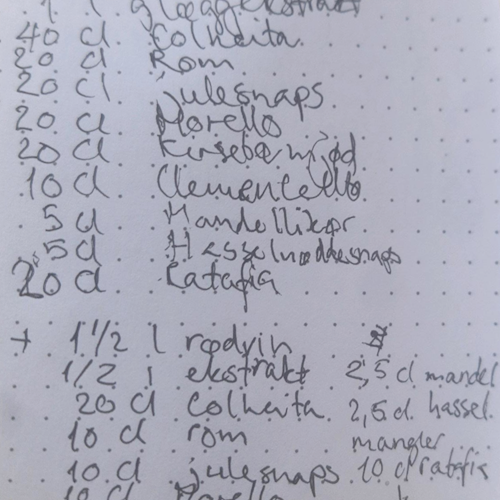 1 l gløggekstrakt
40 cl Colheita
20 cl Rom
20 cl julesnaps
20 cl Morello
20 cl Kirsebærmjød
10 cl Clementello
5 cl Mandellikør
5 cl Hasselnøddesnaps
20 cl Ratafia
+ 1 1/2 l rødvin
1/2 l ekstrakt 2,5 cl mandel
20 cl Colheita 2,5 cl hassel
10 cl rom mangler
10 cl julesnaps 10 cl ratafia
10 cl Morello